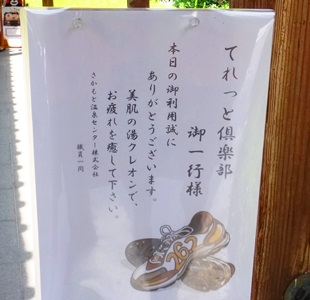 てれっと倶楽部
御一行様
本日の御利用誠に
ありがとうございます。
美肌の湯クレオンで、
お疲れを癒して下さい。
さかもと温泉センター株式会社
職員一同